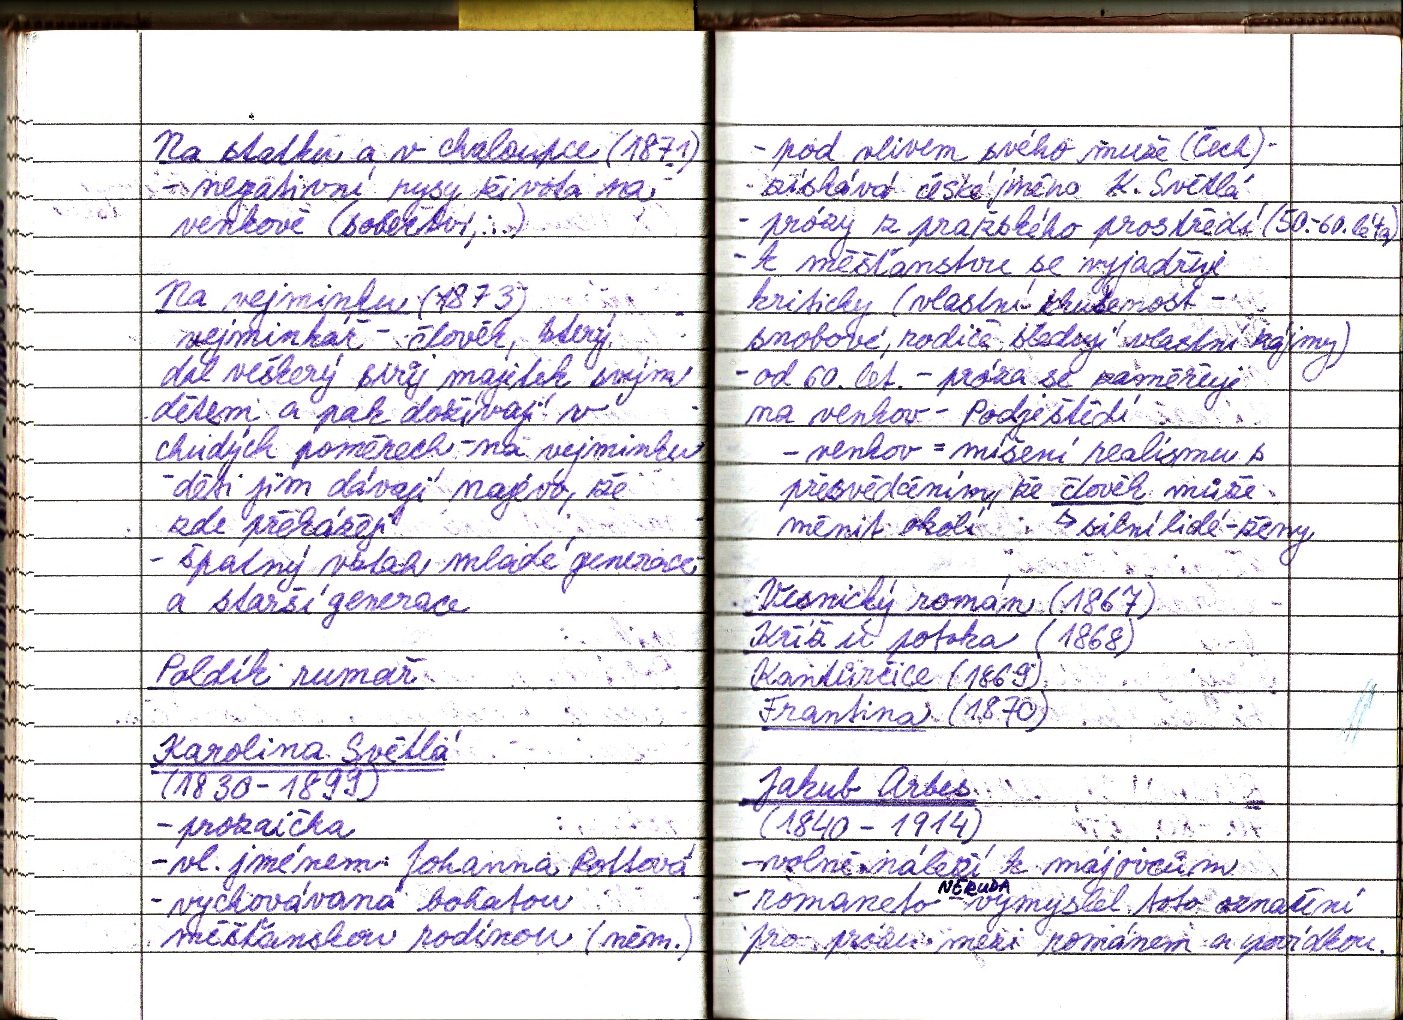 Na statku a v chaloupce (1871)
- negativní rysy života na
venkově (sobectví,...)
Na vejminku (1873)
vejminkář - člověk, který
dal veškerý svůj majetek svým
dětem a pak dožívají v
chudých poměrech - na vejminku
děti jim dávají najevo, že
zde překážejí
- špatný vztah mladé generace
a starší generace
Poldík rumař
Karolina Světlá
(1830 - 1899)
- prozaička
- vl. jménem: Johanna Rottová
- vychovávaná bohatou
měšťanskou rodinou (něm.)
- pod vlivem svého muže (Čech) -
získává české jméno K. Světlá
- prózy z pražského prostředí (50.-60. léta)
- k měšťanstvu se vyjadřuje
kriticky (vlastní zkušenost -
snobové, rodiče sledují vlastní zájmy)
- od 60. let. - próza se zaměřuje
na venkov - Podještědí
- venkov = míšení realismu s
přesvědčením, že člověk může
měnit okolí ↳ silní lidé - ženy
Vesnický román (1867)
Kříž u potoka (1868)
Kantůrčice (1869)
Frantina (1870)
Jakub Arbes
(1840 - 1914)
- volně náleží k májovcům
- romaneto - NERUDA vymyslel toto označení
pro prózu mezi románem a povídkou.